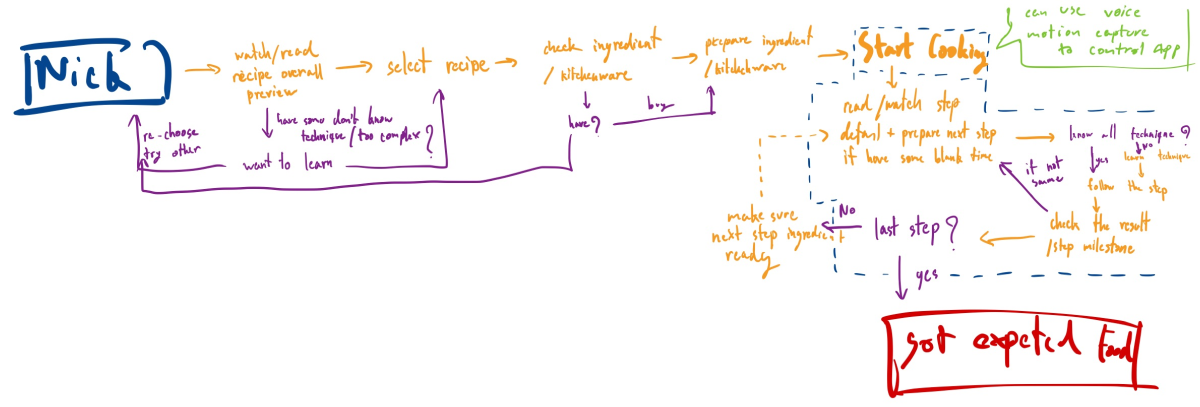 Nick
watch/read
recipe overall
preview
select recipe
check ingredient
/kitchenware
prepare ingredient
/kitchenware
Start Cooking
can use voice
motion capture
to control App
have some don't know
technique/too complex?
want to learn
re-choose
try other
have?
buy
read/watch step
detail + prepare next step
if have some blank time
know all technique?
yes
no
learn technique
follow the step
check the result
/step milestone
if not
same
last step?
No
make sure
next step ingredient
ready
yes
got expeted Food